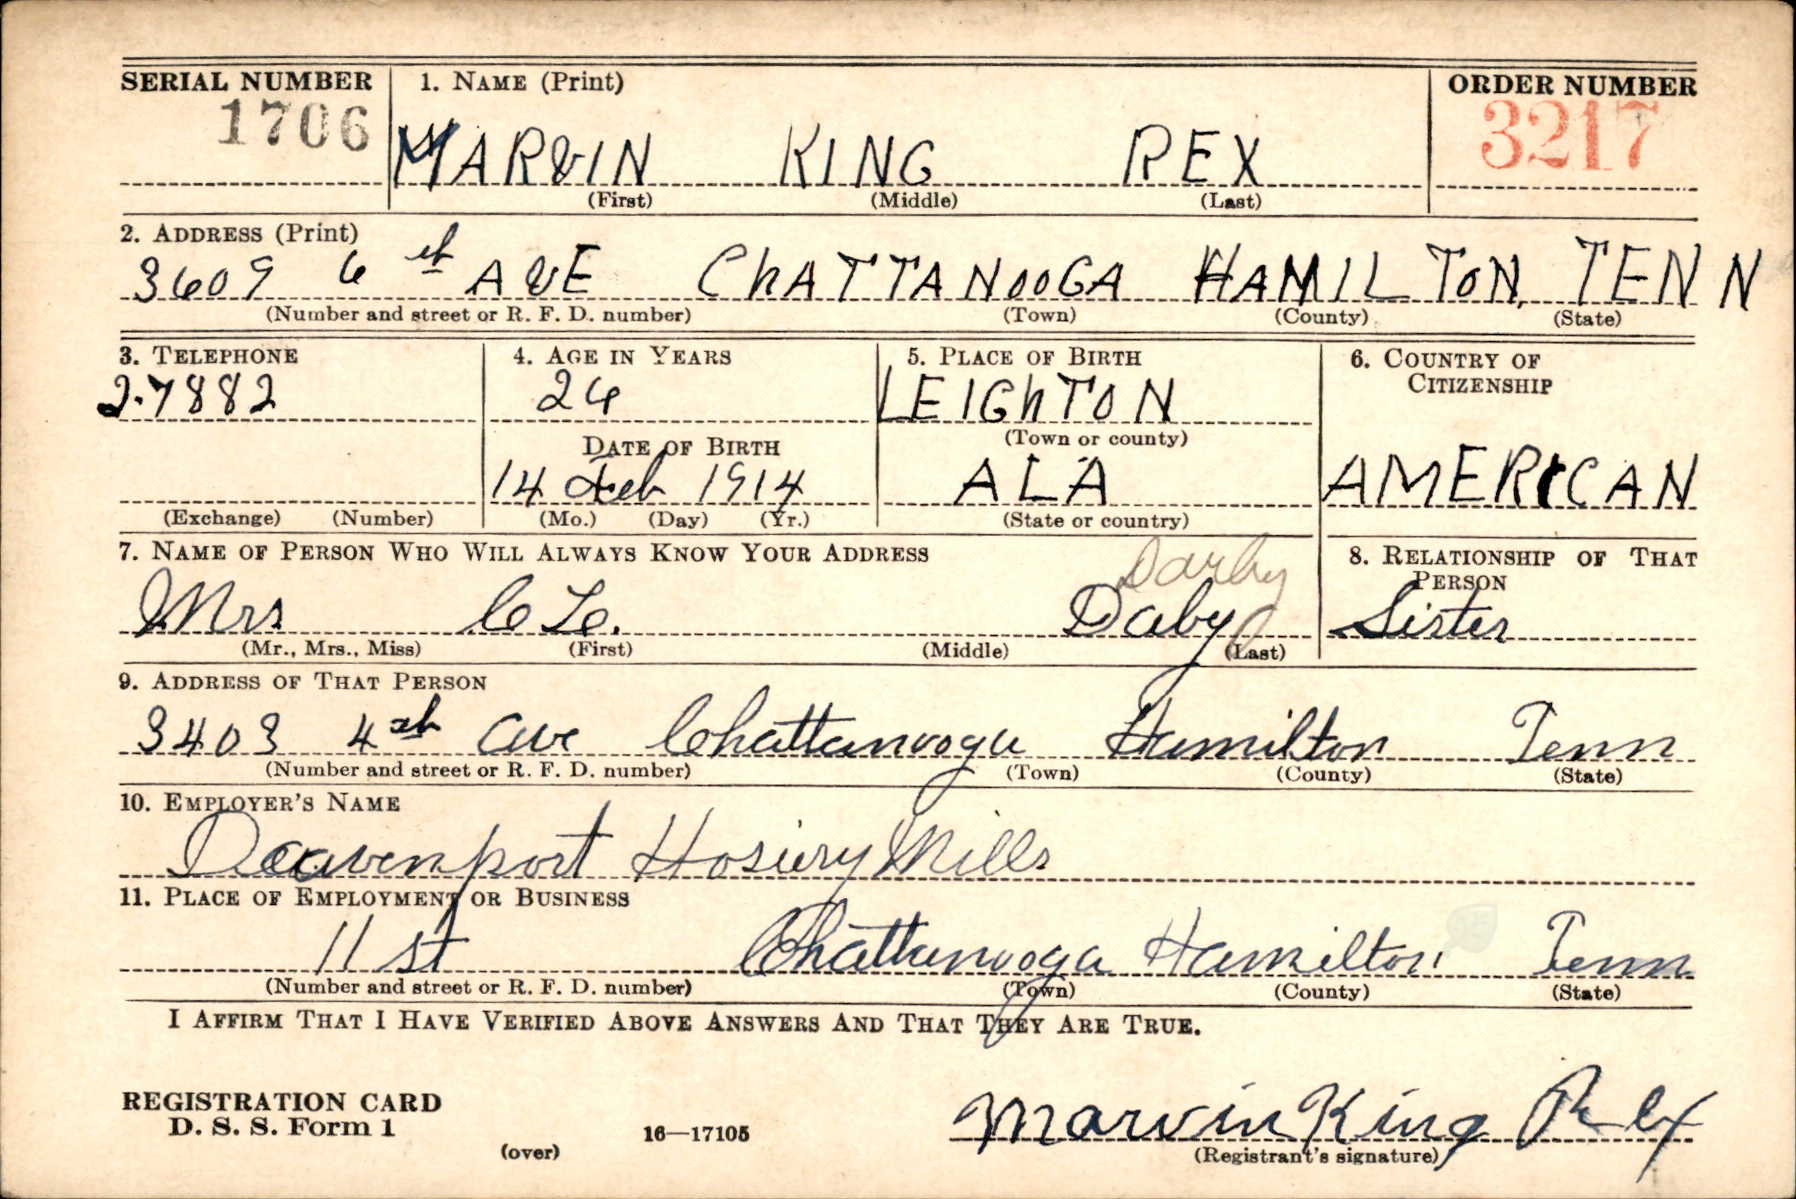 SERIAL NUMBER 1. NAME (Print) ORDER NUMBER
1706 MARVIN KING REX 3217
(First) (Middle) (Last)
2. ADDRESS (Print)
3609 6th AVE CHATTANOOGA HAMILTON, TENN
(Number and street or R. F. D. number) (Town) (County) (State)
3. TELEPHONE 4. AGE IN YEARS 5. PLACE OF BIRTH 6. COUNTRY OF CITIZENSHIP
2-7882 26 LEIGHTON
(Town or county)
DATE OF BIRTH
14 Feb 1914 ALA AMERICAN
(Exchange) (Number) (Mo.) (Day) (Yr.) (State or country)
7. NAME OF PERSON WHO WILL ALWAYS KNOW YOUR ADDRESS 8. RELATIONSHIP OF THAT PERSON
Darby
Mrs C L. Daby Sister
(Mr., Mrs., Miss) (First) (Middle) (Last)
9. ADDRESS OF THAT PERSON
3403 4th Ave Chattanooga Hamilton Tenn
(Number and street or R. F. D. number) (Town) (County) (State)
10. EMPLOYER'S NAME
Davenport Hosiery Mills
11. PLACE OF EMPLOYMENT OR BUSINESS
11 st Chattanooga Hamilton Tenn
(Number and street or R. F. D. number) (Town) (County) (State)
I AFFIRM THAT I HAVE VERIFIED ABOVE ANSWERS AND THAT THEY ARE TRUE.
REGISTRATION CARD
D. S. S. Form 1
(over) 16—17105
Marvin King Rex
(Registrant's signature)